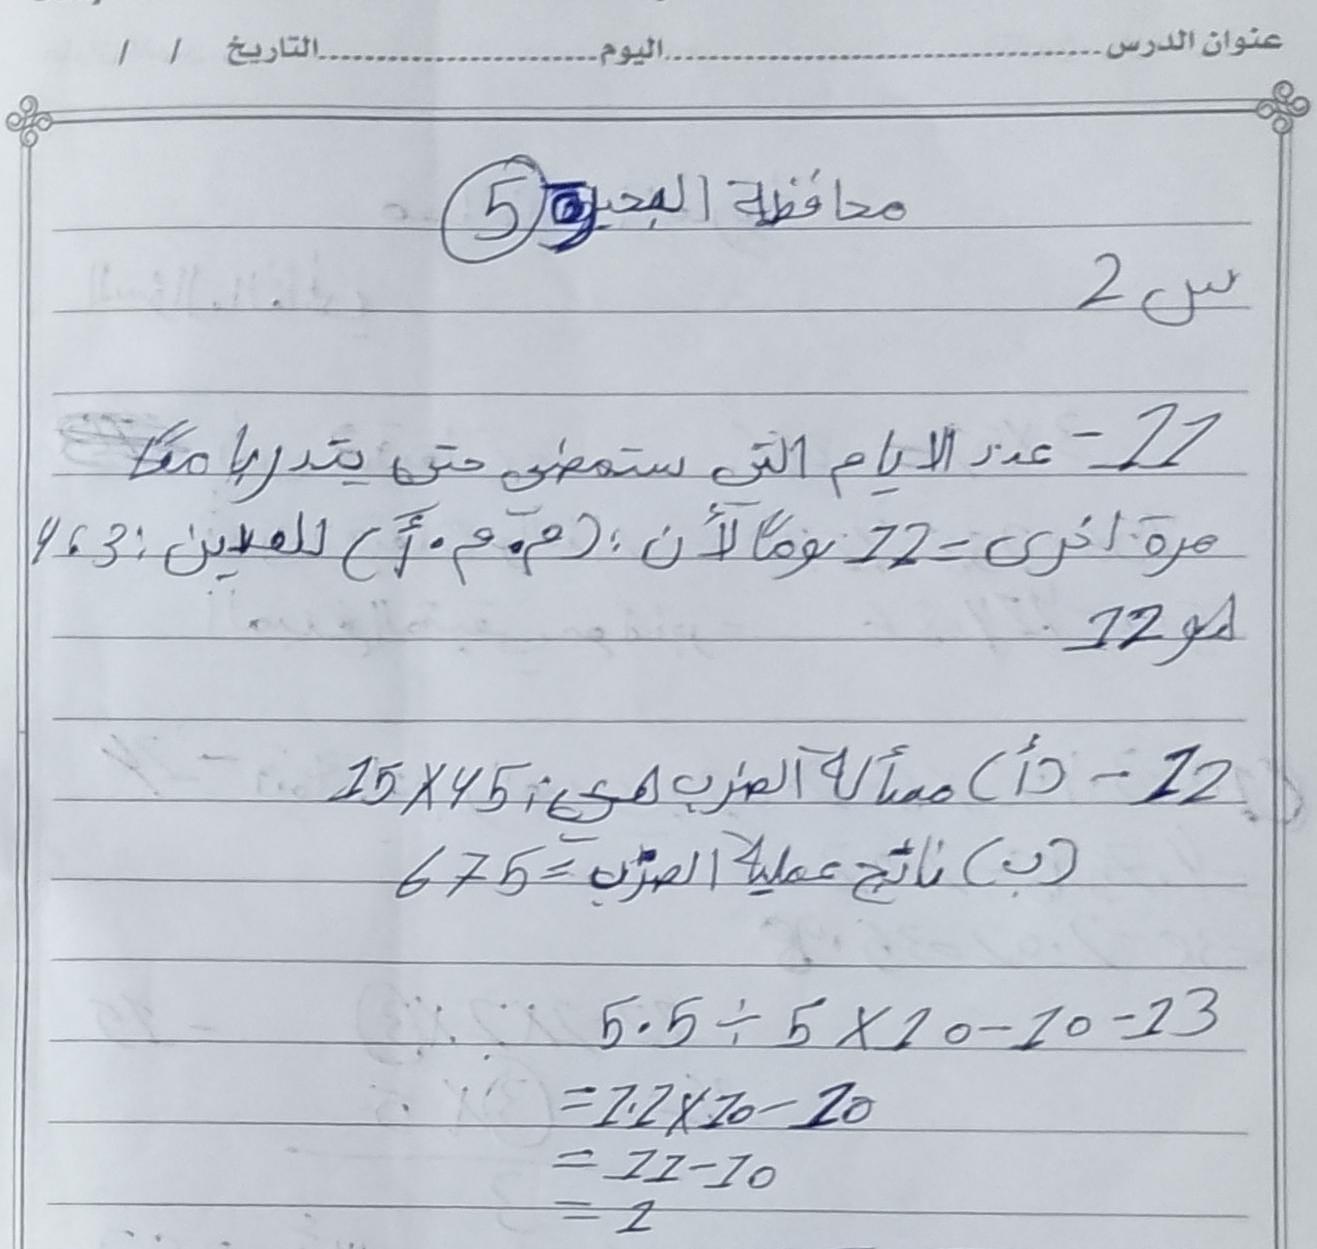 عنوان الدرس ........................ اليوم ........................ التاريخ / /
محافظة البحيرة 5
س 2
11 - عدد الايام التى ستمضى حتى يتدربا معًا
مرة اخرى = 12 يومًا لأن : (م.م.أ) للعددين : 3 ، 4
هو 12
12 - (أ) مسألة الضرب هي : 45 × 15
(ب) ناتج عملية الضرب = 675
13 - 5.5 ÷ 5 × 10 - 10
= 1.1 × 10 - 10
= 11 - 10
= 1